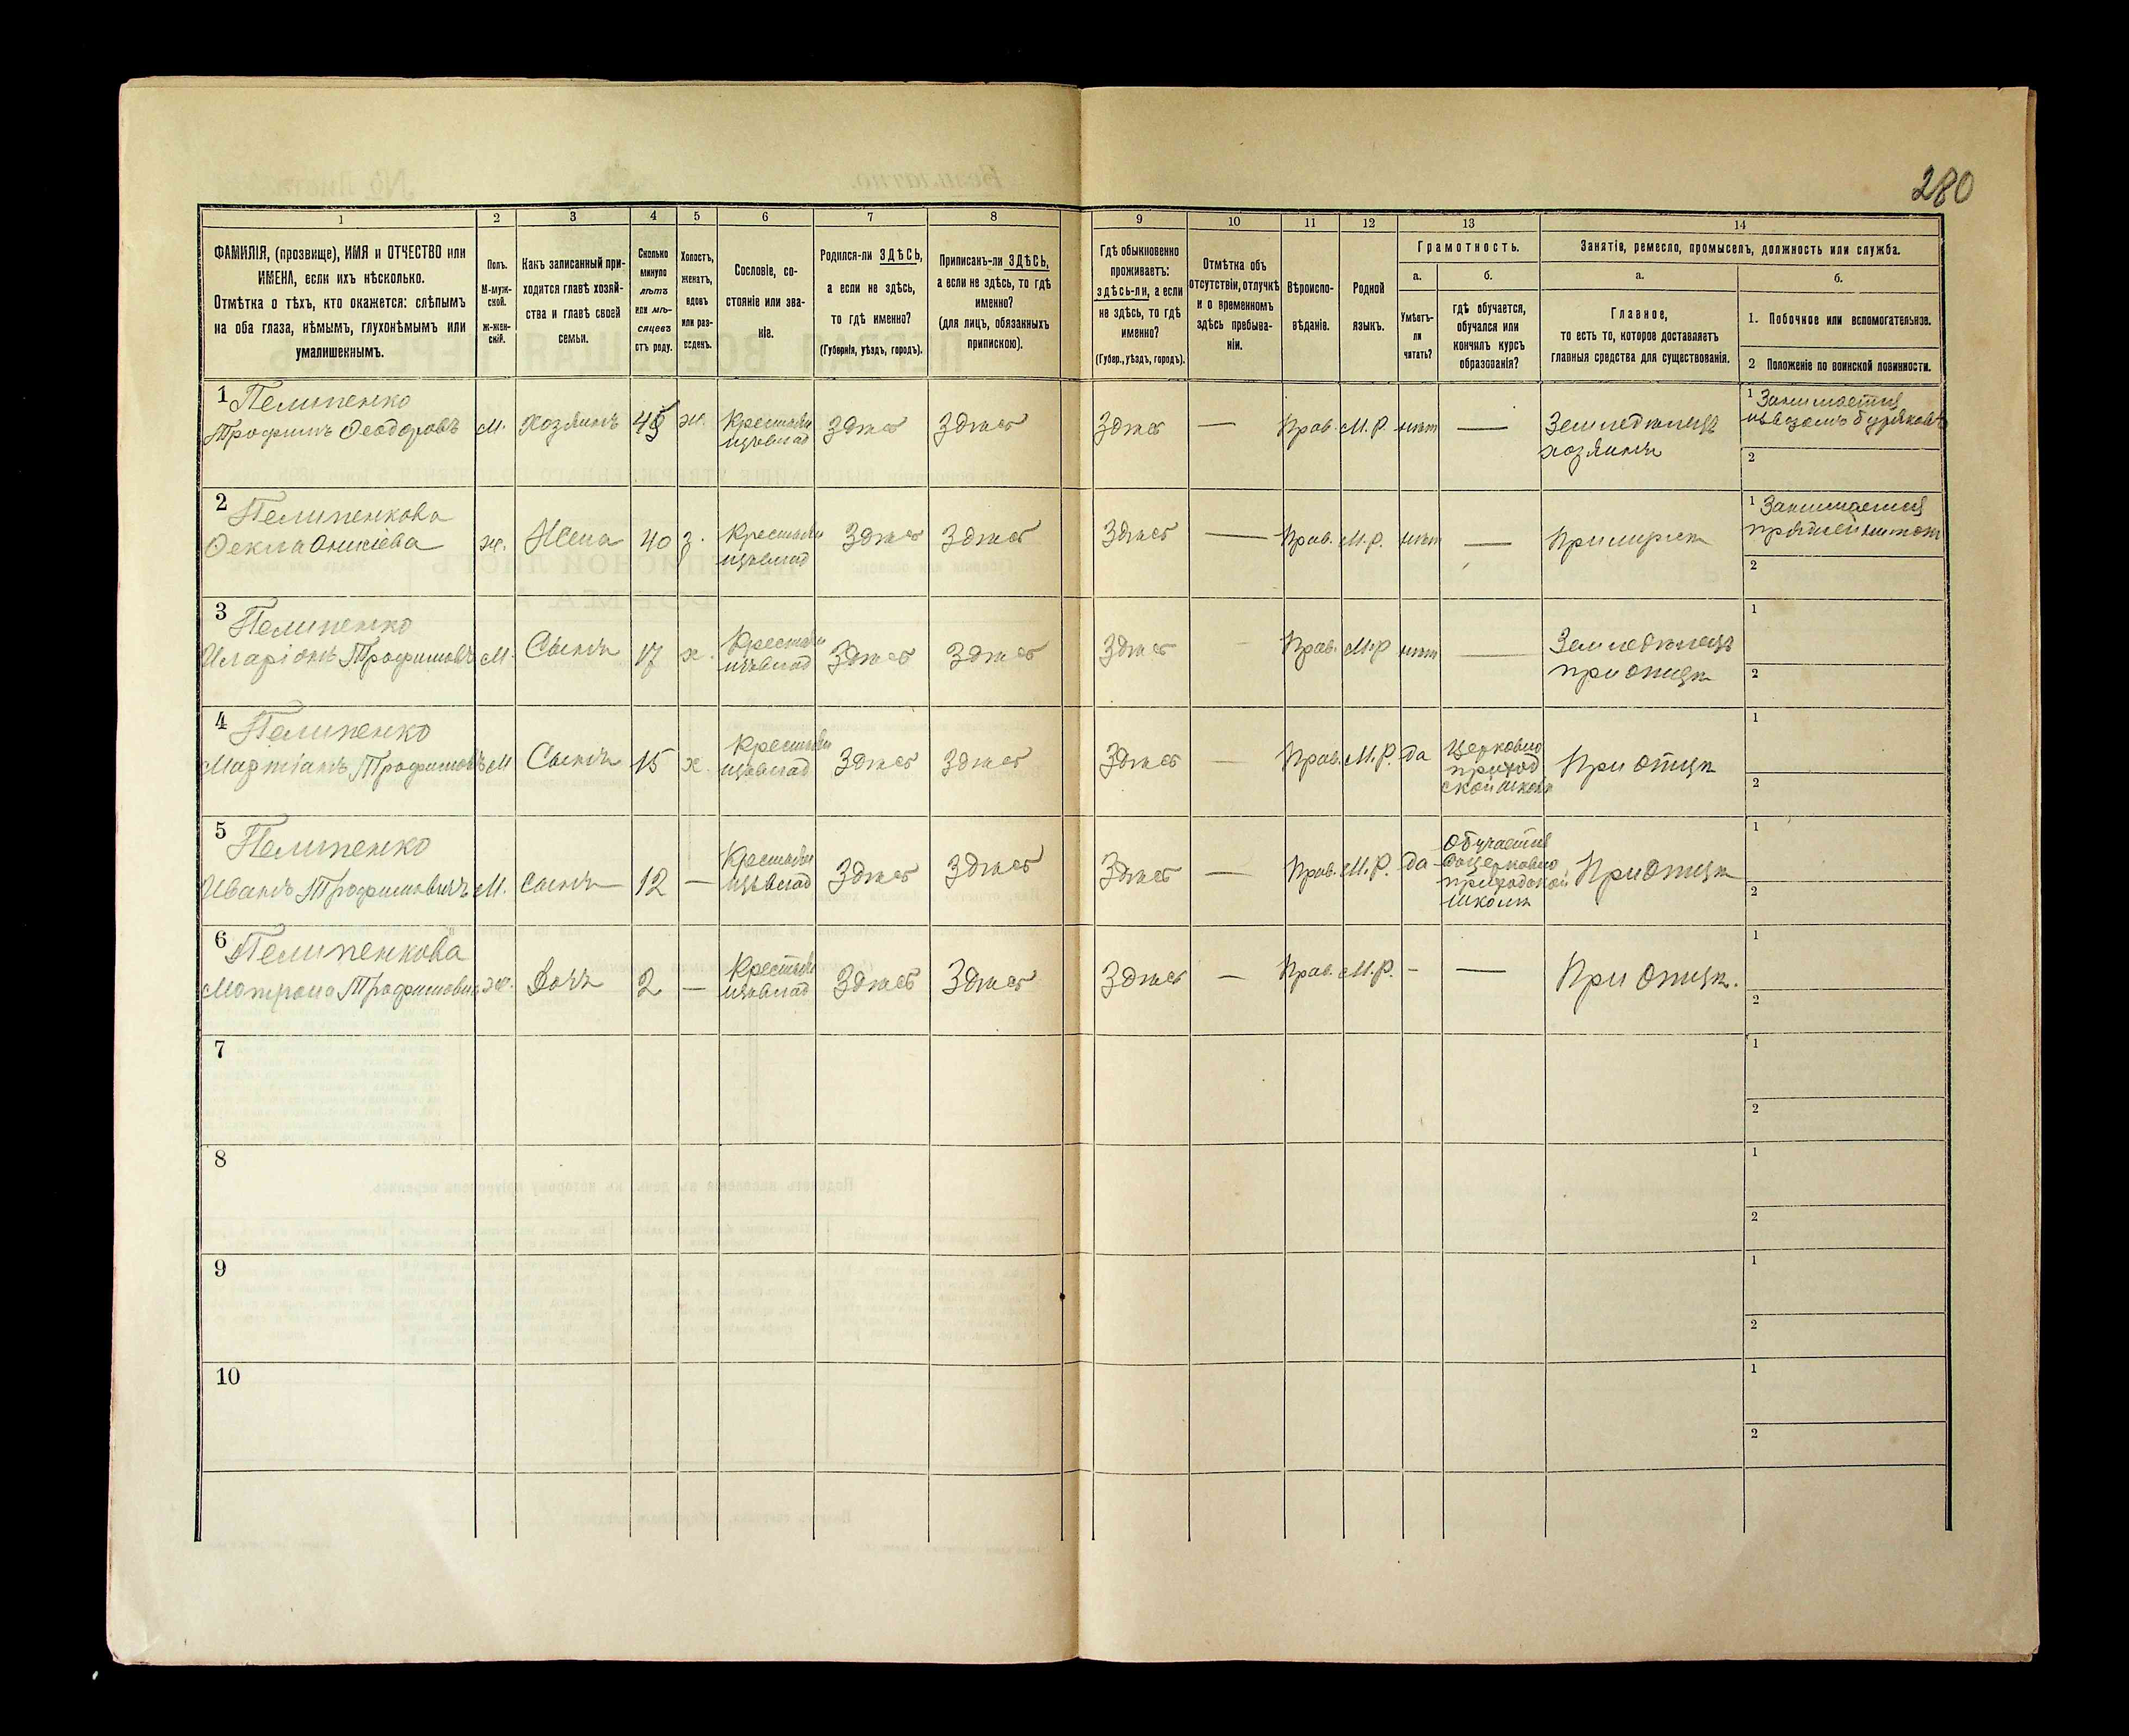 280
1 2 3 4 5 6 7 8 9 10 11 12 13 14
ФАМИЛІЯ, (прозвище), ИМЯ и ОТЧЕСТВО или
ИМЕНА, если ихъ нѣсколько.
Отмѣтка о тѣхъ, кто окажется: слѣпымъ
на оба глаза, нѣмымъ, глухонѣмымъ или
умалишеннымъ.
Полъ.
М-муж-
ской.
Ж-жен-
скій.
Какъ записанный при-
ходится главѣ хозяй-
ства и главѣ своей
семьи.
Сколько
минуло
лѣтъ
или мѣ-
сяцевъ
отъ роду.
Холостъ,
женатъ,
вдовъ
или раз-
веденъ.
Сословіе, со-
стояніе или зва-
ніе.
Родился-ли ЗДѢСЬ,
а если не здѣсь,
то гдѣ именно?
(Губернія, уѣздъ, городъ).
Приписанъ-ли ЗДѢСЬ,
а если не здѣсь, то гдѣ
именно?
(для лицъ, обязанныхъ
припискою).
Гдѣ обыкновенно
проживаетъ:
здѣсь-ли, а если
не здѣсь, то гдѣ
именно?
(Губер., уѣздъ, городъ).
Отмѣтка объ
отсутствіи, отлучкѣ
и о временномъ
здѣсь пребыва-
ніи.
Вѣроиспо-
вѣданіе.
Родной
языкъ.
Грамотность.
а.
Умѣетъ-
ли
читать?
б.
гдѣ обучается,
обучался или
кончилъ курсъ
образованія?
Занятіе, ремесло, промыселъ, должность или служба.
а.
Главное,
то есть то, которое доставляетъ
главныя средства для существованія.
б.
1. Побочное или вспомогательное.
2 Положеніе по воинской повинности.
1 Пелипенко
Трофимъ Ѳеодоровъ М. Хозяинъ ж. Здѣсь Здѣсь Здѣсь — Прав. М.Р. нѣтъ — Земледѣлецъ
хозяинъ
1 Занимается
2
2 Пелипенкова
Ѳекла Онисіева ж. Жена 40 з. Здѣсь Здѣсь Здѣсь — Прав. М.Р. нѣтъ — При мужѣ
1 Занимается
2
3 Пелипенко
Иларіонъ Трофимовъ М. Сынъ 17 х. Здѣсь Здѣсь Здѣсь - Прав. М.Р. нѣтъ — Земледѣлецъ
при отцѣ
1
2
4 Пелипенко
Мартіанъ Трофимовъ М Сынъ 15 х. Здѣсь Здѣсь Здѣсь — Прав. М.Р. да
Церковно
приход
ской школѣ
При отцѣ
1
2
5 Пелипенко
Иванъ Трофимовичъ М. Сынъ 12 — Здѣсь Здѣсь Здѣсь — Прав. М.Р. да
Обучается
въ церковно
приходской
школѣ
При отцѣ
1
2
6 Пелипенкова
Матрона Трофимовна ж. Дочь 2 — Здѣсь Здѣсь Здѣсь — Прав. М.Р. - — При отцѣ.
1
2
7
1
2
8
1
2
9
1
2
10
1
2